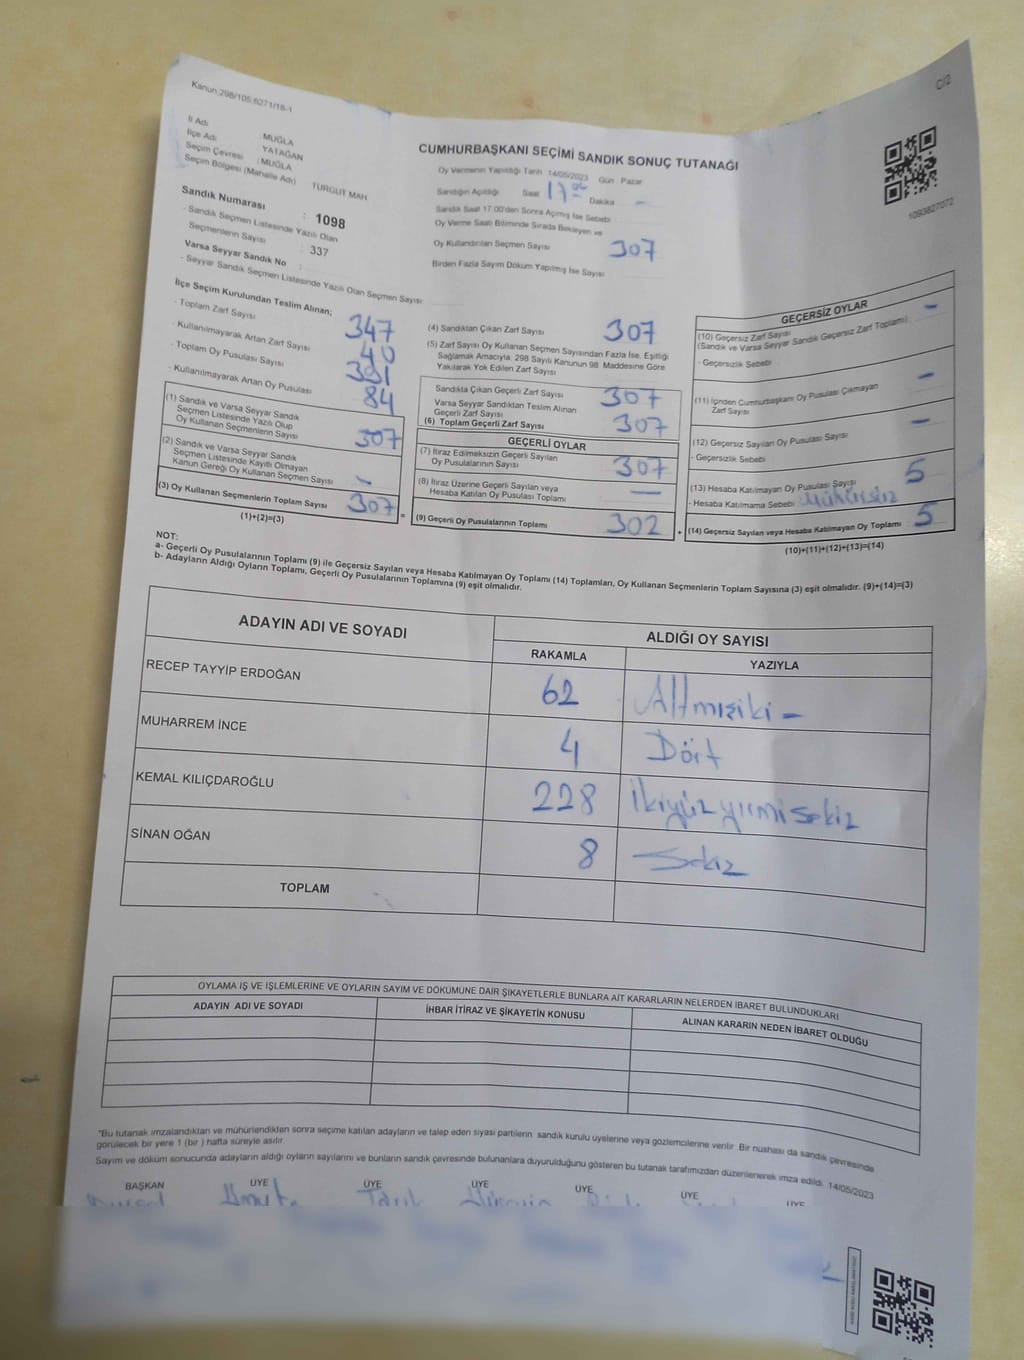 Kanun:298/105;6271/18-1
C/2
İl Adı : MUĞLA
İlçe Adı : YATAĞAN
Seçim Çevresi : MUĞLA
Seçim Bölgesi (Mahalle Adı) : TURGUT MAH.
Sandık Numarası : 1098
- Sandık Seçmen Listesinde Yazılı Olan
Seçmenlerin Sayısı : 337
Varsa Seyyar Sandık No :
- Seyyar Sandık Seçmen Listesinde Yazılı Olan Seçmen Sayısı
CUMHURBAŞKANI SEÇİMİ SANDIK SONUÇ TUTANAĞI
Oy Vermenin Yapıldığı Tarih 14/05/2023 Gün Pazar
Sandığın Açıldığı Saat 17 Dakika -
Sandık Saat 17:00'den Sonra Açılmış İse Sebebi
Oy Verme Saati Bitiminde Sırada Bekleyen ve
Oy Kullandırılan Seçmen Sayısı 307
Birden Fazla Sayım Döküm Yapılmış İse Sayısı
1093827072
İlçe Seçim Kurulundan Teslim Alınan;
- Toplam Zarf Sayısı 347
- Kullanılmayarak Artan Zarf Sayısı 40
- Toplam Oy Pusulası Sayısı 391
- Kullanılmayarak Artan Oy Pusulası 84
(1) Sandık ve Varsa Seyyar Sandık
Seçmen Listesinde Yazılı Olup
Oy Kullanan Seçmenlerin Sayısı 307
(2) Sandık ve Varsa Seyyar Sandık
Seçmen Listesinde Kayıtlı Olmayan
Kanun Gereği Oy Kullanan Seçmen Sayısı -
(3) Oy Kullanan Seçmenlerin Toplam Sayısı 307 =
(1)+(2)=(3)
(4) Sandıktan Çıkan Zarf Sayısı 307
(5) Zarf Sayısı Oy Kullanan Seçmen Sayısından Fazla İse, Eşitliği
Sağlamak Amacıyla, 298 Sayılı Kanunun 98. Maddesine Göre
Yakılarak Yok Edilen Zarf Sayısı
Sandıkta Çıkan Geçerli Zarf Sayısı 307
Varsa Seyyar Sandıktan Teslim Alınan
Geçerli Zarf Sayısı
(6) Toplam Geçerli Zarf Sayısı 307
GEÇERLİ OYLAR
(7) İtiraz Edilmeksizin Geçerli Sayılan
Oy Pusulalarının Sayısı 307
(8) İtiraz Üzerine Geçerli Sayılan veya
Hesaba Katılan Oy Pusulası Toplamı -
(9) Geçerli Oy Pusulalarının Toplamı 302 +
GEÇERSİZ OYLAR
(10) Geçersiz Zarf Sayısı
(Sandık ve Varsa Seyyar Sandık Geçersiz Zarf Toplamı) -
- Geçersizlik Sebebi
(11) İçinden Cumhurbaşkanı Oy Pusulası Çıkmayan
Zarf Sayısı -
(12) Geçersiz Sayılan Oy Pusulası Sayısı -
- Geçersizlik Sebebi
(13) Hesaba Katılmayan Oy Pusulası Sayısı 5
- Hesaba Katılmama Sebebi Mühürsüz
(14) Geçersiz Sayılan veya Hesaba Katılmayan Oy Toplamı : 5
(10)+(11)+(12)+(13)=(14)
NOT:
a- Geçerli Oy Pusulalarının Toplamı (9) ile Geçersiz Sayılan veya Hesaba Katılmayan Oy Toplamı (14) Toplamları, Oy Kullanan Seçmenlerin Toplam Sayısına (3) eşit olmalıdır. (9)+(14)=(3)
b- Adayların Aldığı Oyların Toplamı, Geçerli Oy Pusulalarının Toplamına (9) eşit olmalıdır.
ADAYIN ADI VE SOYADI
ALDIĞI OY SAYISI
RAKAMLA YAZIYLA
RECEP TAYYİP ERDOĞAN 62 Altmışiki -
MUHARREM İNCE 4 Dört
KEMAL KILIÇDAROĞLU 228 İkiyüzyirmisekiz
SİNAN OĞAN 8 Sekiz
TOPLAM
OYLAMA İŞ VE İŞLEMLERİNE VE OYLARIN SAYIM VE DÖKÜMÜNE DAİR ŞİKAYETLERLE BUNLARA AİT KARARLARIN NELERDEN İBARET BULUNDUKLARI
ADAYIN ADI VE SOYADI İHBAR İTİRAZ VE ŞİKAYETİN KONUSU ALINAN KARARIN NEDEN İBARET OLDUĞU
*Bu tutanak imzalandıktan ve mühürlendikten sonra seçime katılan adayların ve talep eden siyasi partilerin sandık kurulu üyelerine veya gözlemcilerine verilir. Bir nüshası da sandık çevresinde
görülecek bir yere 1 (bir) hafta süreyle asılır.
Sayım ve döküm sonucunda adayların aldığı oyların sayılarını ve bunların sandık çevresinde bulunanlara duyurulduğunu gösteren bu tutanak tarafımızdan düzenlenerek imza edildi. 14/05/2023
BAŞKAN ÜYE ÜYE ÜYE ÜYE ÜYE ÜYE